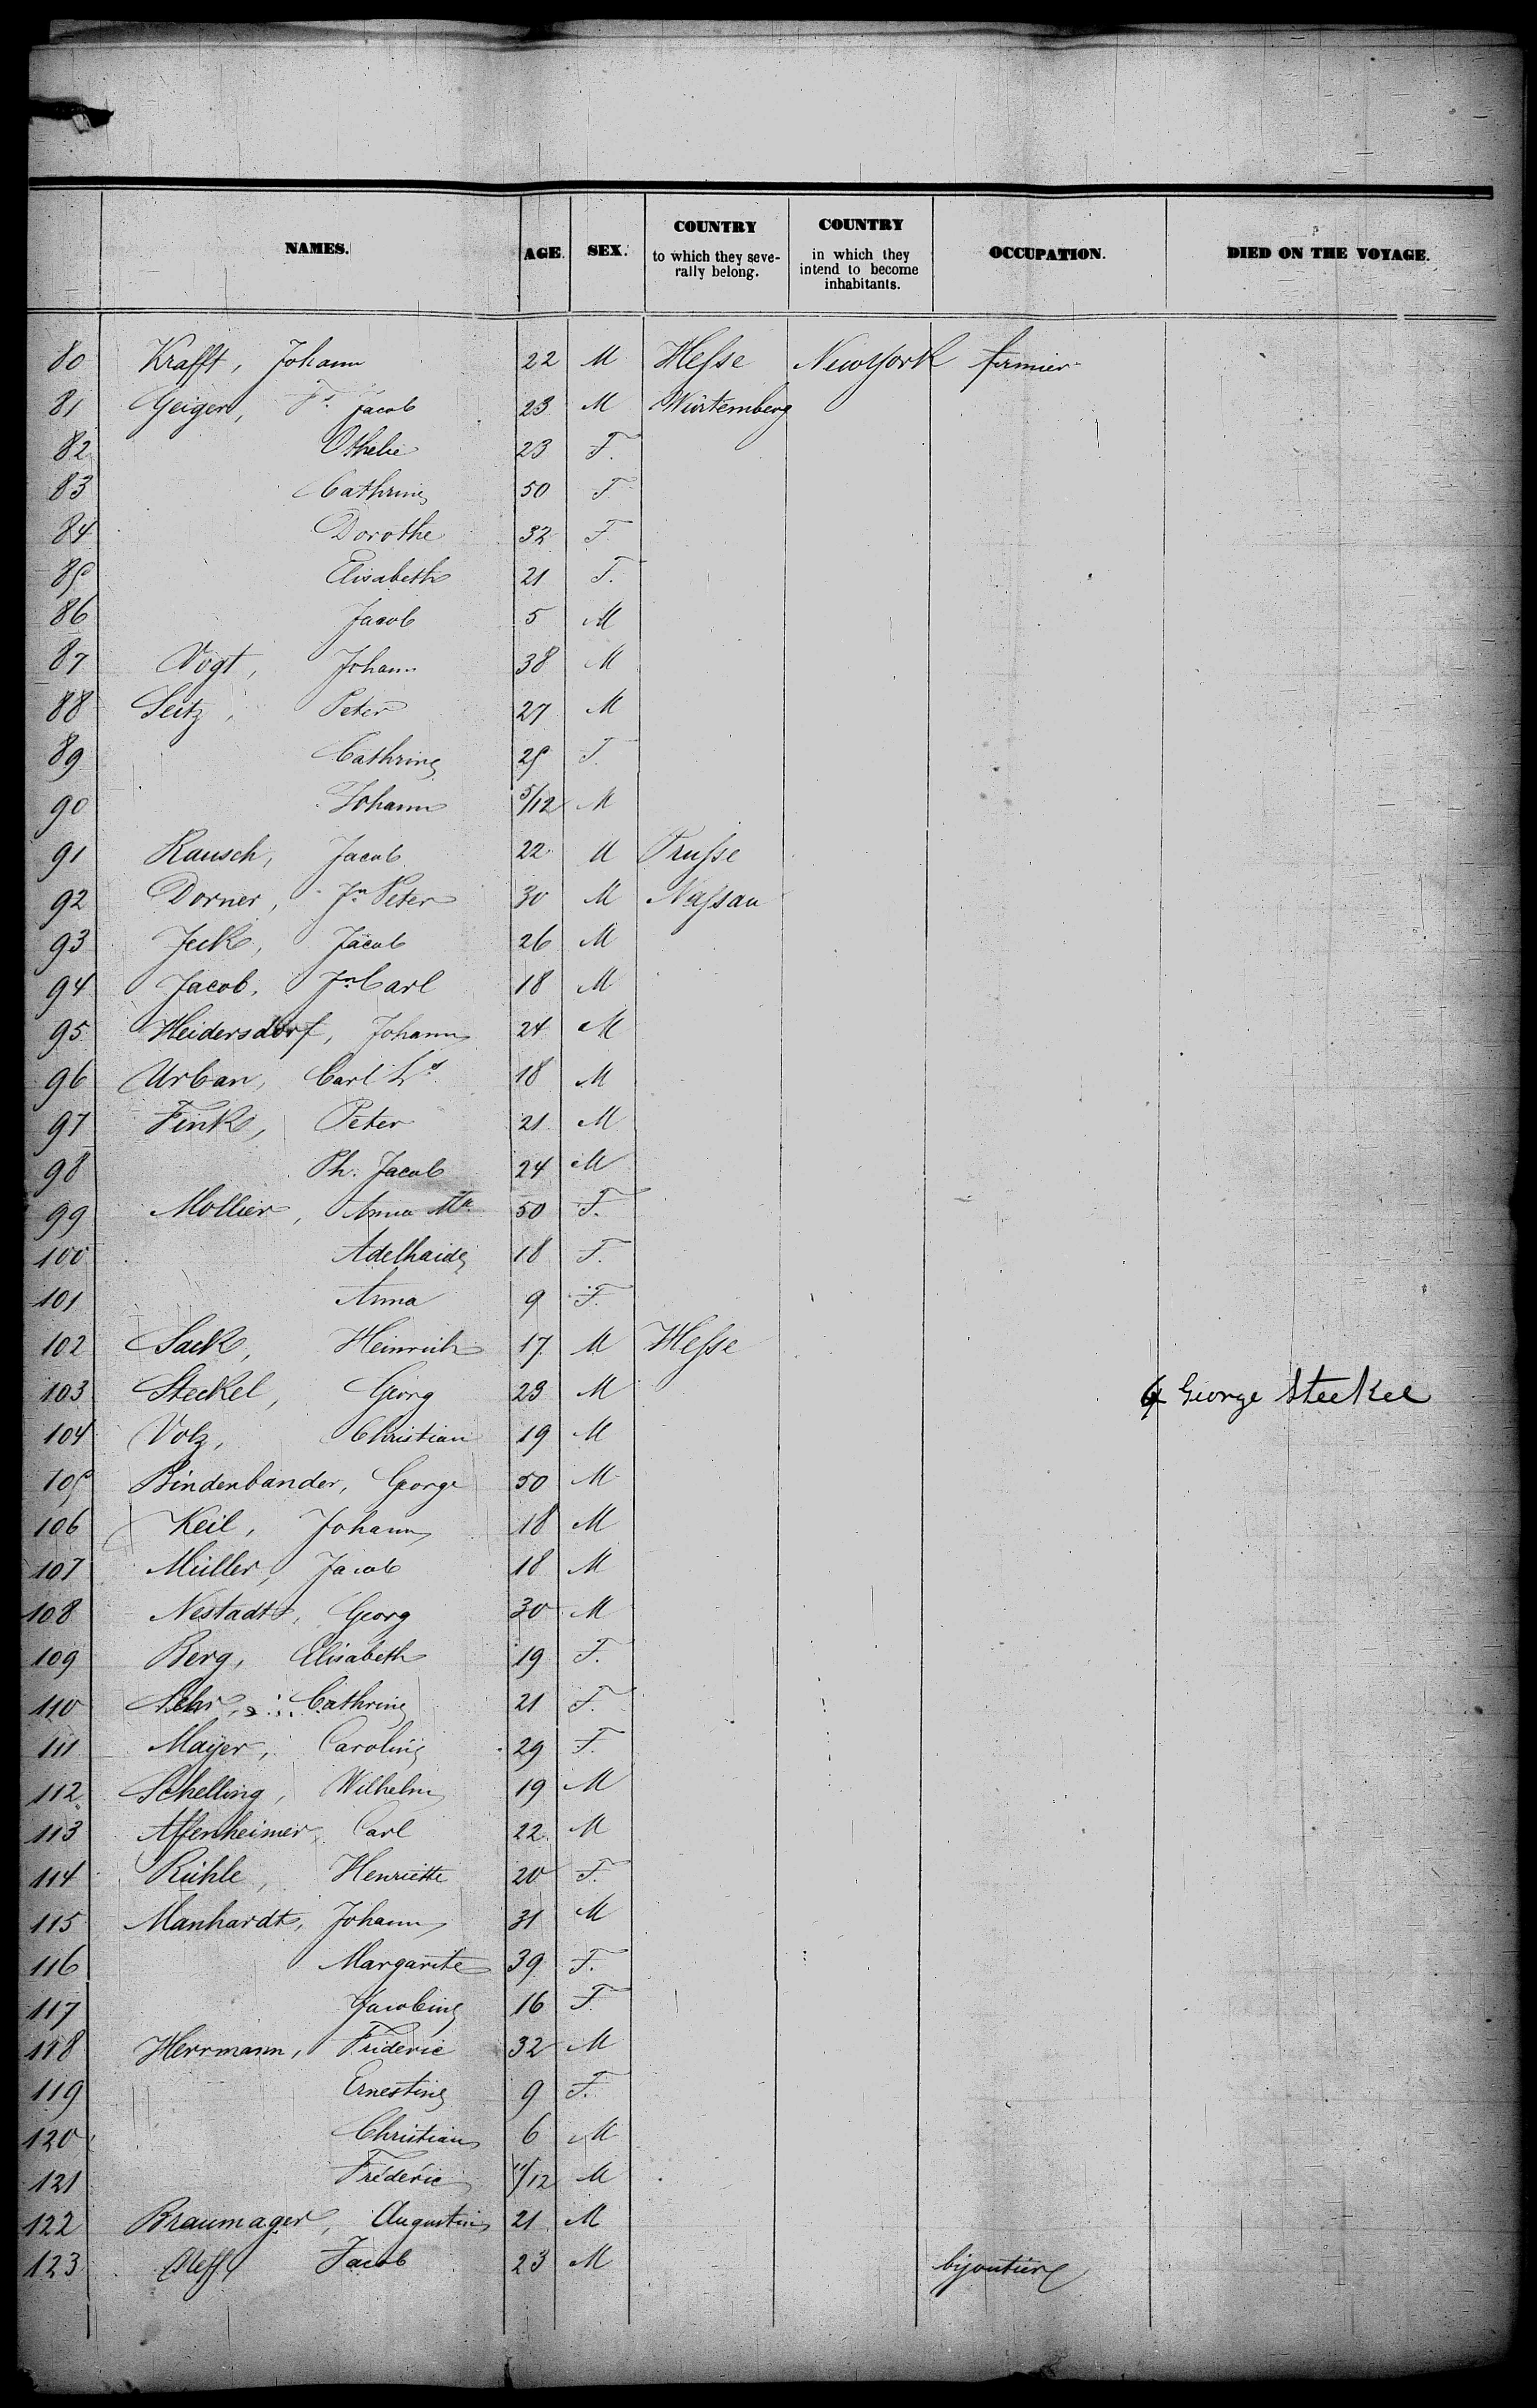 NAMES. AGE. SEX. COUNTRY to which they seve- rally belong. COUNTRY in which they intend to become inhabitants. OCCUPATION. DIED ON THE VOYAGE.
80 Krafft, Johann 22 M Hesse New York fermier
81 Geiger, Jacob 23 M Würtemberg
82 Othelie 23 F.
83 Cathrine 50 F
84 Dorothe 32 F
85 Elisabeth 21 F.
86 Jacob 5 M
87 Vogt, Johann 38 M
88 Seitz, Peter 27 M
89 Cathrine 25 F.
90 Johann 5/12 M
91 Rausch, Jacob 22 M Prusse
92 Dorner, Jn Peter 30 M Nassau
93 Jeck, Jacob 26 M
94 Jacob, Jn Carl 18 M
95 Heidersdorf, Johann 24 M
96 Urban, Carl Ls 18 M
97 Fink, Peter 21 M
98 Ph. Jacob 24 M
99 Mollier, Anna Me 50 F.
100 Adelhaide 18 F.
101 Anna 9 F.
102 Sack, Heinrich 17 M Hesse
103 Steckel, Georg 23 M George Steckel
104 Volz, Christian 19 M
105 Bindenbander, George 50 M
106 Keil, Johann 18 M
107 Müller, Jacob 18 M
108 Nestadt, Georg 30 M
109 Berg, Elisabeth 19 F.
110 Cathrine 21 F.
111 Mayer, Caroline 29 F.
112 Schelling, Wilhelm 19 M
113 Affenheimer, Carl 22 M
114 Rühle, Henriette 20 F.
115 Manhardt, Johann 31 M
116 Margarite 39 F.
117 Jacobine 16 F.
118 Herrmann, Frideric 32 M
119 Ernestine 9 F.
120 Christian 6 M
121 Fréderic 11/12 M
122 Braumager, Augustin 21 M
123 Neff Jacob 23 M bijoutier